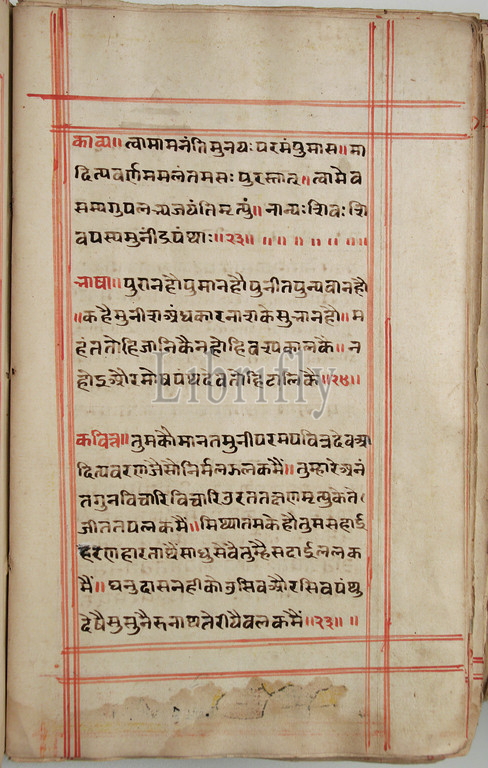 काव्य॥ त्वामामनंतिमुनयःपरमंपुमास॥मा
दित्यवर्णममलंतमसःपुरस्तात्॥त्वामेव
सम्यगुपलभ्यजयंतिमृत्युं॥नान्यःशिवःशि
वपदस्यमुनींद्रपंथाः॥२३॥ ॥ ॥ ॥ ॥ ॥ ॥
भाषा॥पुरानहौपुमानहौपुनीतपुन्यवानहौ
॥कहैमुनीशअंधकारनाशकेसुभानहौ॥म
हंततोहिजानिकैनहोहिवश्यकालके॥न
औरमोषपंथदेवतोहिटालिकै॥२४॥
कवित्त॥तुमकौमानतमुनीपरमपवित्रदेवआ
दित्यवरणजैसोनिर्मलझलकमैं॥तुम्हारेअनं
तगुनविचारिविचारिउरततक्षणमृत्युकेते
जीततपलकमैं॥मिथ्यातमकेहौतुमसहाई
हरणहारतार्थैंसाधुसेवैतुम्हैसदाईललक
मैं॥धनुदासनहीकोउसिवऔरसिवपंथु
खलकमैं॥२३॥ ॥
Librifly